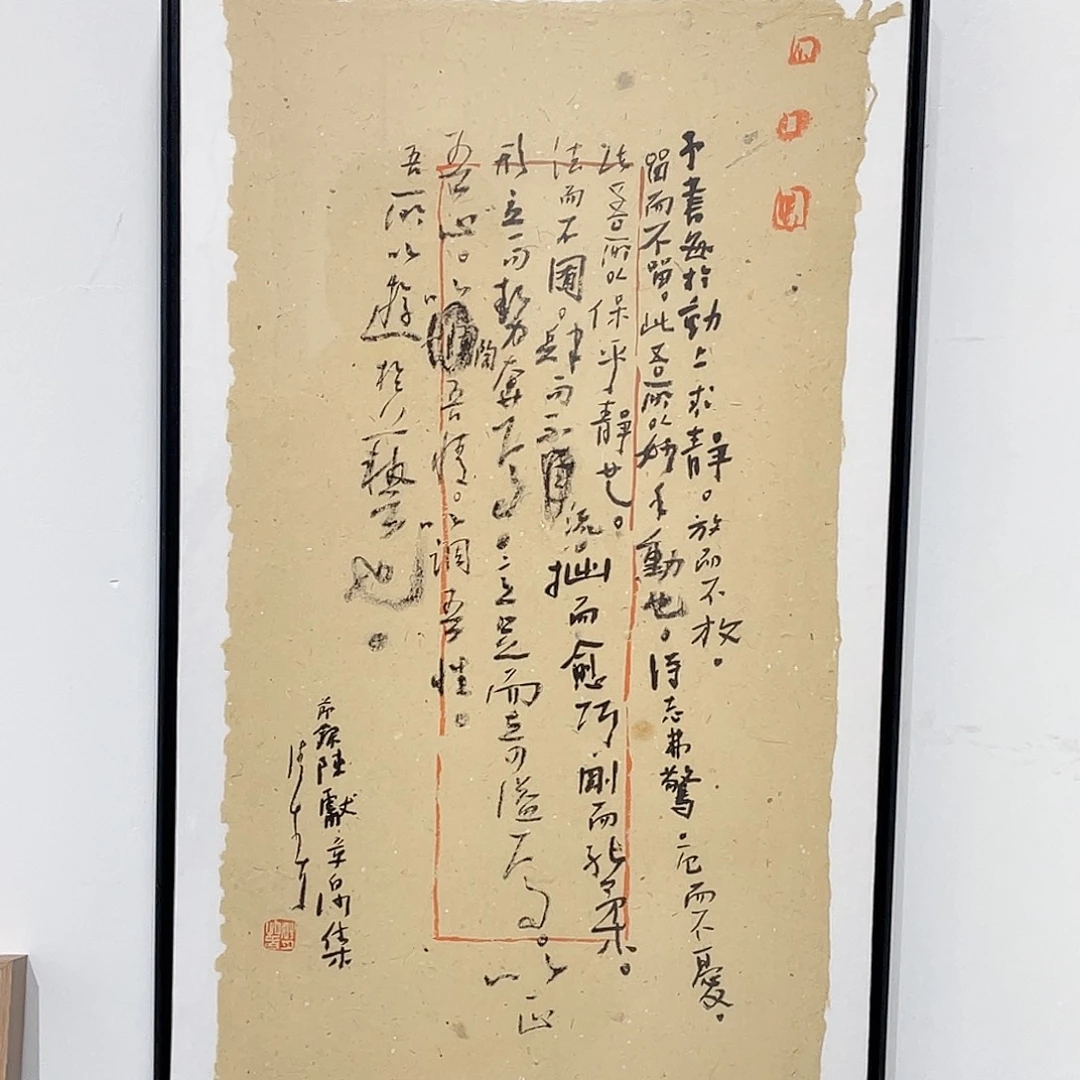 予書每於動上求靜。放而不放。
留而不留。此吾所以妙乎動也。得志弗驚。厄而不憂。
此吾所以保乎靜也。
法而不囿。肆而不流。拙而愈巧。剛而能柔。
形立而勢奔焉。意足而奇溢焉。以正
吾心。以陶吾情。以調吾性。
吾所以遊於藝也。
錄陳獻章集